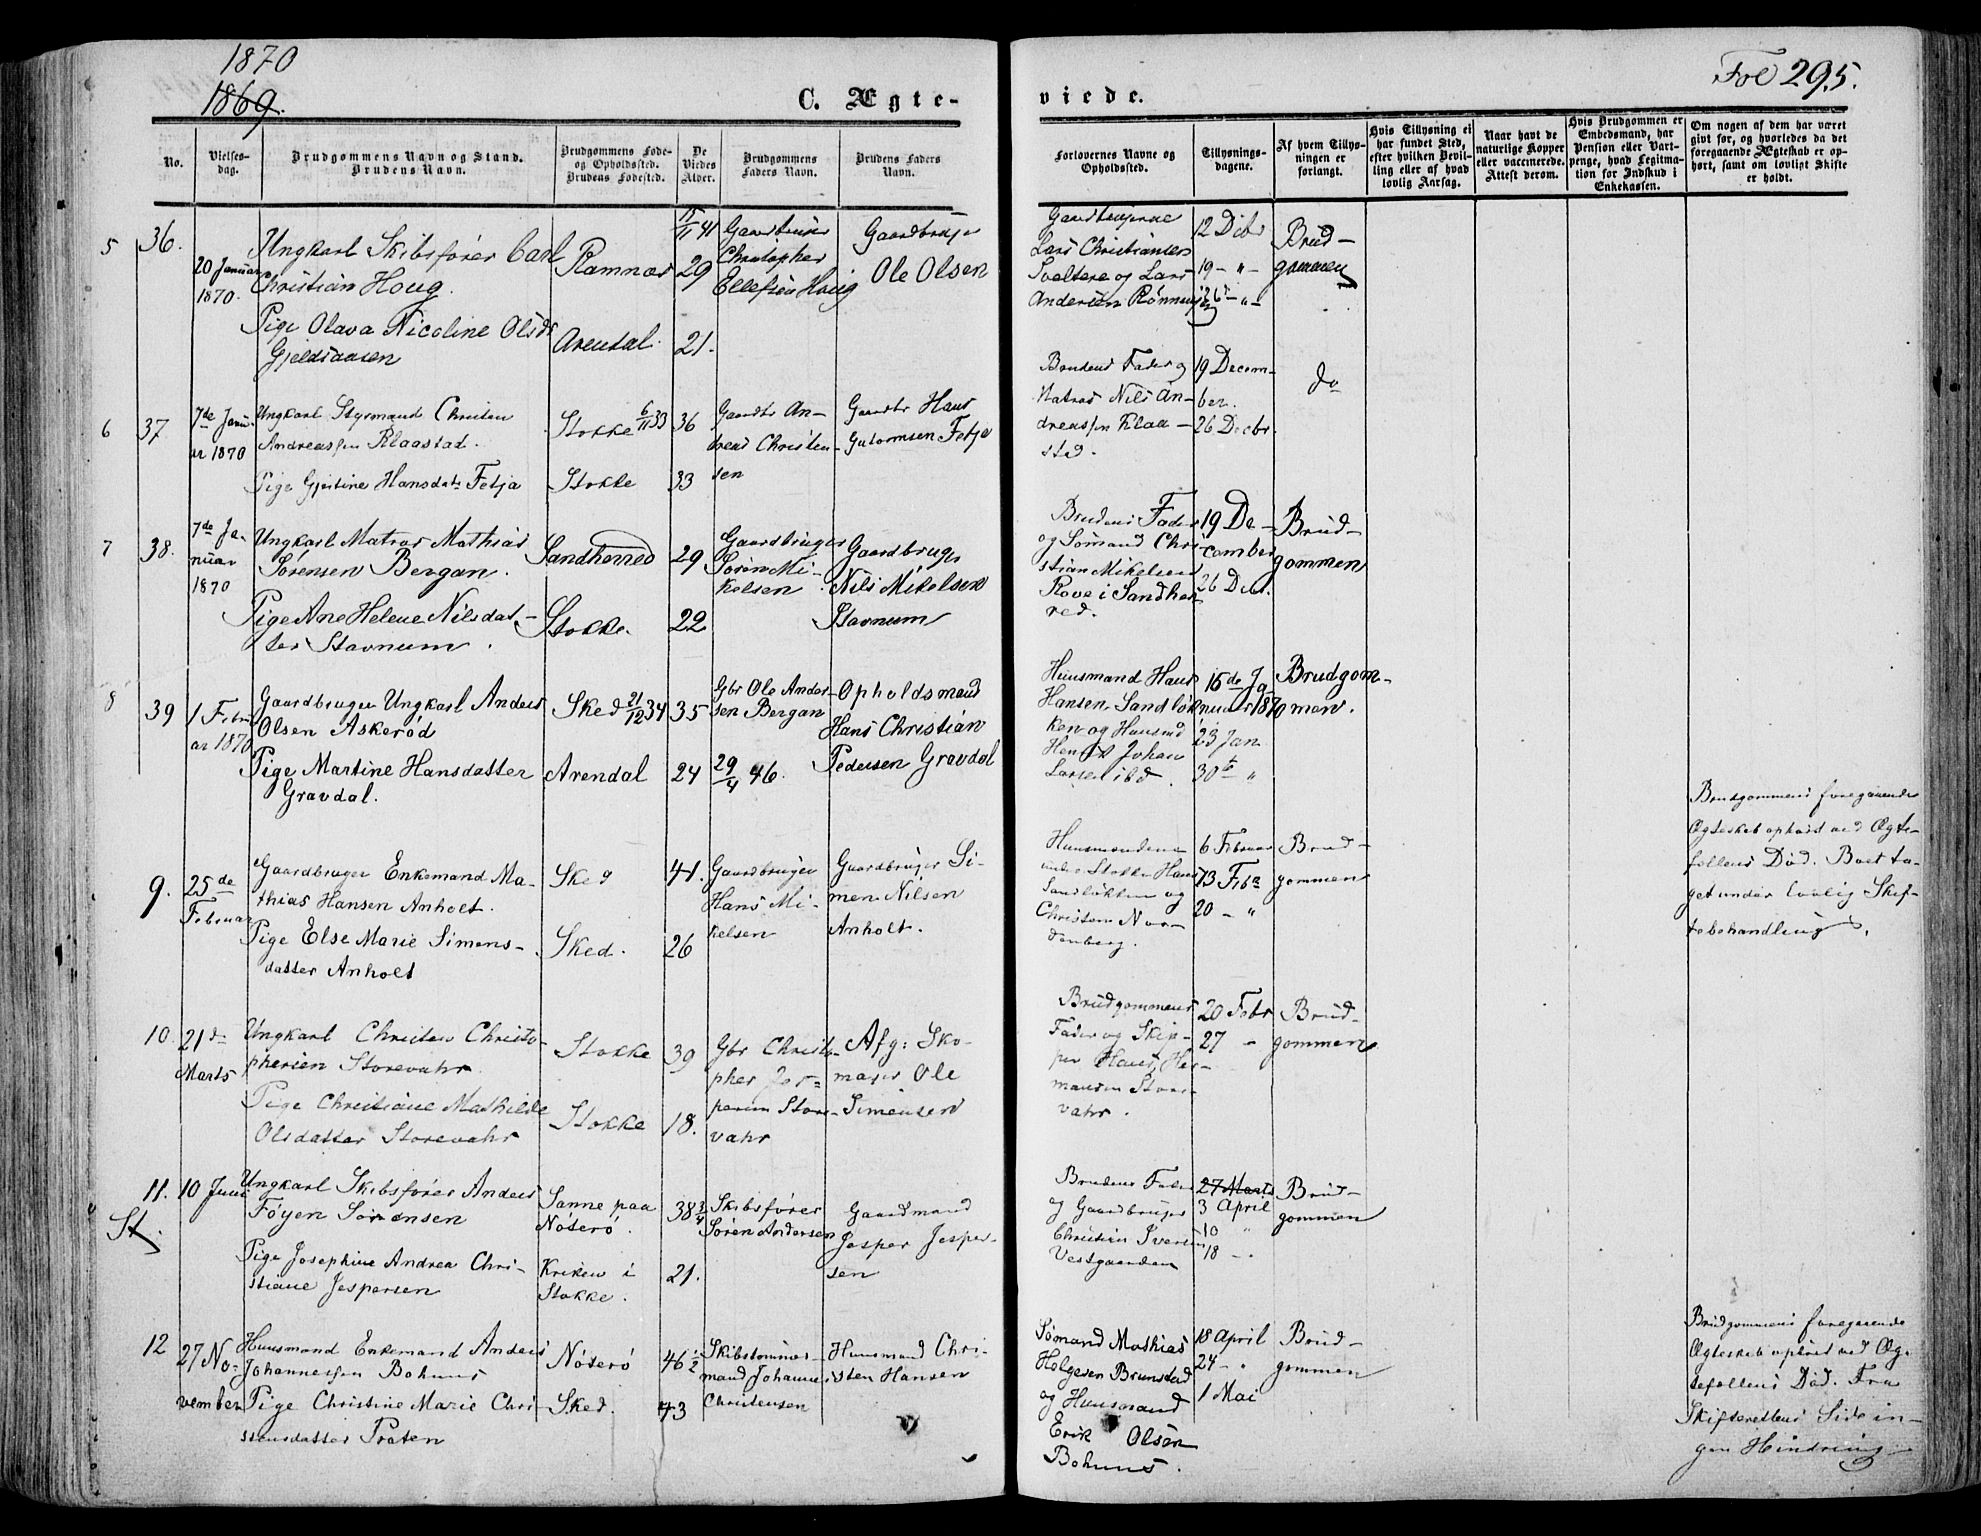 1870
1869.
C. Ægte-
viede.
Fol 295.
No.
Vielses-
dag.
Brudgommens Navn og Stand.
Brudens Navn.
Brudgommens Føde-
og Opholdssted.
Brudens Fødested.
De
Viedes
Alder.
Brudgommens
Faders Navn.
Brudens Faders
Navn.
Forlovernes Navne og
Opholdssted.
Tillysnings-
dagene.
Af hvem Tillys-
ningen er
forlangt.
Hvis Tillysning ei
har fundet Sted,
efter hvilken Bevil-
ling eller af hvad
lovlig Aarsag.
Naar havt de
naturlige Kopper
eller vaccinerede.
Attest derom.
Hvis Brudgommen er
Embedsmand, har
Pension eller Vart-
penge, hvad Legitima-
tion for Indskud i
Enkekassen.
Om nogen af dem har været
gift før, og hvorledes da det
foregaaende Ægteskab er op-
hørt, samt om lovligt Skifte
er holdt.
5
36.
20 Januar
1870.
Ungkarl Skibsfører Carl
Christian Houg.
Pige Olava Nicoline Olsdr
Gjeldsaasen
Ramnæs
Arendal.
15/11 41
29
21.
Gaardbruger
Christopher
Ellefsen Houg
Gaardbruger
Ole Olsen
Gaardbrugerne
Lars Christiansen
og Lars
Andersen Rønningen
12 Decbr
19 - " -
26 - " -
Brud-
gommen
6
37
7de Janu-
ar 1870
Ungkarl Styrmand Christen
Andreassen Klaastad.
Pige Gjertine Hansdatr Fetja
Stokke
Stokke
6/11 33
36
33
Gaardbr An-
dreas Christen-
sen
Gaardbr Hans
Gulormsen Fetja
Brudens Fader og
Matros Nils An-
dreassen Klaa-
stad.
19 Decem-
ber.
26 Decbr.
do
7
38.
7de Ja-
nuar
1870
Ungkarl Matros Mathias
Sørensen Bergan.
Pige Ane Helene Nilsdat-
ter Stavnum.
Sandherred
Stokke.
29
22
Gaardbruger
Søren Mi-
kelsen
Gaardbruger
Nils Mikelsen
Stavnum
Brudens Fader
og Sømand Chri
stian Mikelsen
Rove i Sandher
red.
19 De-
cember
26 Decbr.
Brud-
gommen
8
39
1 Febru
ar 1870
Gaardbruger Ungkarl Anders
Olsen Askerød
Pige Martine Hansdatter
Gravdal.
Sked
Arendal
21/12 34
35
24
Gbr Ole Ander-
sen Bergan
29/4 46.
Opholdsmand
Hans Christian
Pedersen Gravdal
Huusmand Hans
Hansen Sandløk
ken og Huusmd
Johan
Larsen ibd.
16de Ja-
nuar 1870
23 Jan
30te "
Brudgom-
men.
9.
25de
Februar
Gaardbruger Enkemand Ma-
thias Hansen Anholt.
Pige Else Marie Simens-
datter Anholt
Sked
Sked.
41.
26
Gaardbruger
Hans Mi-
kelsen
Gaardbruger Si-
men Nilsen
Anholt.
Huusmændene
under Stokke Hans
Sandløkken og
Christen Nor-
denberg.
6 Februar
13 Febr
20 - "
Brud-
gommen
Brudgommens foregaaende
Ægteskab ophørt ved Ægte-
fellens Død. Boet ta-
get under lovlig Skif-
tebehandling.
10.
21de
Marts
Ungkarl Christen Christo-
phersen Storevahr.
Pige Christiane Mathilde
Olsdatter Storevahr
Stokke
Stokke
39
18.
Gbr Christo-
pher Jes-
persen Store-
vahr
Afg: Sko-
mager Ole
Simensen
Brudgommens
Fader og Skip-
per Hans Her-
mansen Store-
vahr.
20 Febr
27 -
Brud-
gommen
11.
St.
10 Juni
Ungkarl Skibsfører Anders
Føyen Sørensen
Pige Josephine Andrea Chri-
stiane Jespersen
Sanne paa
Nøterø.
Kriken i
Stokke.
38 3/4
21.
Skibsfører
Søren Andersen
Gaardmand
Jesper Jesper-
sen
Brudens Fader
og Gaardbruger
Christian Iversen
Vestgaarden
27 Marts
3 April
10 "
18 -
Brud-
gommen
12
27 No-
vember
Huusmand Enkemand Anders
Johannessen Bohuus
Pige Christine Marie Chri-
stensdatter Præten
Nøterø
Sked.
46 1/2
43
Skibstømmer-
mand Johannes
Christensen
Huusmand Chri-
sten Hansen
Sømand Mathias
Helgesen Brunstad
og Huusmand
Erik Olsen
Bohuus.
18 April
24 - "
1 Mai
Brud-
gommen
Brudgommens foregaaende
Ægteskab ophørt ved Æg-
tefellens Død. Fra
Skifterettens Side in-
gen Hindring